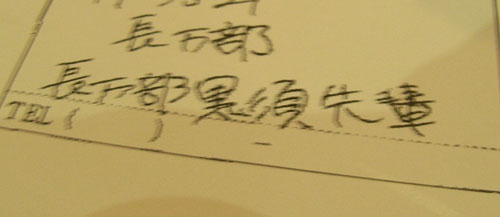 長万部
長万部黒須先輩
TEL ( ) -